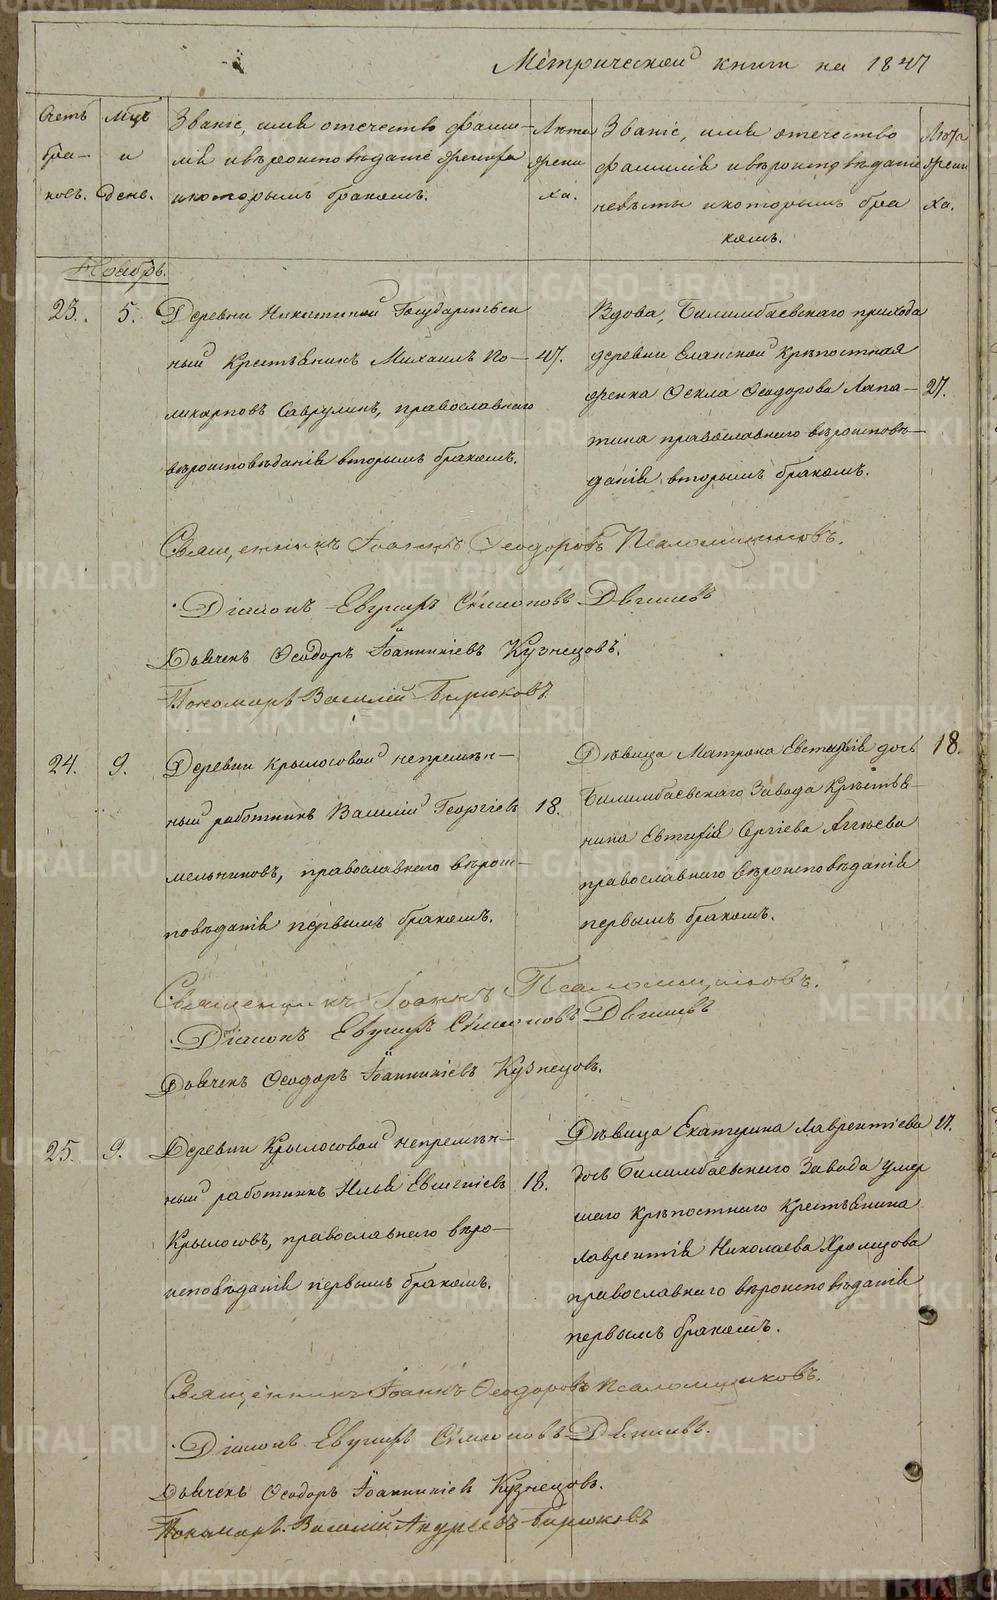 Метрической книги на 1847
Счетъ бра-ковъ.
Мцъ и день.
Званіе, имя отечество фами-
лія и вѣроисповѣданіе жениха
и которымъ бракомъ.
Лѣта жени ха.
Званіе, имя отечество
фамилія и вѣроисповѣданіе
невѣсты и которымъ бра
комъ.
Лѣта жени ха.
Ноябрь.
23. 5.
Деревни Никитиной Государствен
ный Крестьянинъ Михаилъ По-
ликарповъ Саврулинъ, православнаго
вѣроисповѣданія вторымъ бракомъ.
47.
Вдова, Билимбаевскаго прихода
деревни Еланской Крѣпостная
женка Фекла Феодорова Лапа-
тина православнаго вѣроисповѣ-
данія вторымъ бракомъ.
27.
Священникъ Іоаннъ Феодоровъ Псаломщиковъ.
Діаконъ Симоновъ
Дьячекъ Феодоръ Іоанникіевъ Кузнецовъ.
Пономарь Василій Бирюковъ
24. 9.
Деревни Крылосовой непремѣн-
ный работникъ Василій Георгіевъ
Мельниковъ, православнаго вѣроис-
повѣданія первымъ бракомъ.
18.
Дѣвица Матрона дочь
Билимбаевскаго Завода Крестья-
нина Сергіева
православнаго вѣроисповѣданія
первымъ бракомъ.
18.
Священникъ Іоаннъ Псаломщиковъ.
Діаконъ Симоновъ
Дьячекъ Феодоръ Іоанникіевъ Кузнецовъ.
25. 9.
Деревни Крылосовой непремѣн-
ный работникъ Илья Евгеніевъ
Крылосовъ, православнаго вѣро-
исповѣданія первымъ бракомъ.
18.
Дѣвица Екатерина Лаврентіева
дочь Билимбаевскаго Завода умер
шаго Крѣпостнаго Крестьянина
Лаврентія Николаева Хромцова
православнаго вѣроисповѣданія
первымъ бракомъ.
17.
Священникъ Іоаннъ Феодоровъ Псаломщиковъ.
Діаконъ Симоновъ
Дьячекъ Феодоръ Іоанникіевъ Кузнецовъ.
Пономарь Василій Андреевъ Бирюковъ
METRIKI.GASO-URAL.RU